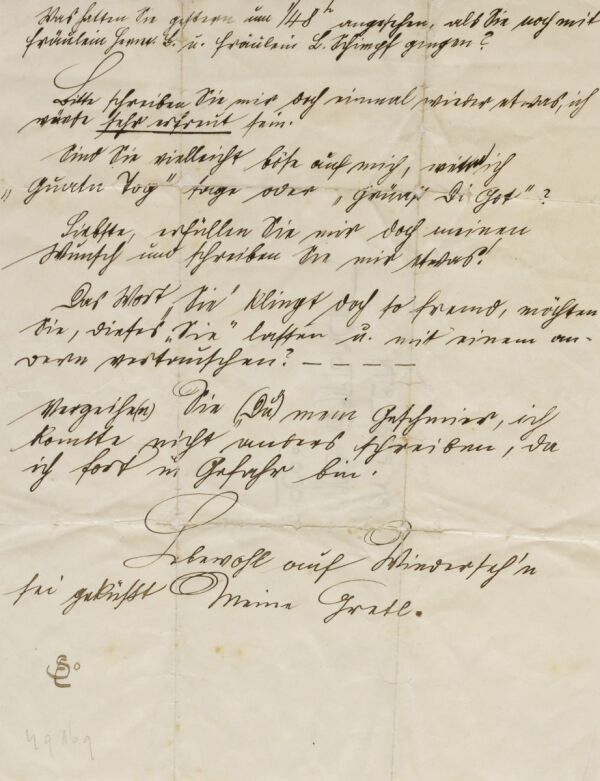 Was hatten Sie gestern um 1/48h angesehen, als Sie noch mit
Fräulein Herm. L. u. Fräulein L. Schimpf gingen?
Bitte schreiben Sie mir doch einmal wieder etwas, ich
würde sehr erfreut sein.
Sind Sie vielleicht böse auf mich, weil ich
„Guatn Tog" sage oder „Grüaß Di Got"?
Liebste, erfüllen Sie mir doch meinen
Wunsch und schreiben Sie mir etwas!
Das Wort „Sie" klingt doch so fremd, möchten
Sie, dieses „Sie" lassen u. mit einem an-
dern vertauschen? – – – –
Verzeihe(n) Sie (Du) mein Geschmier, ich
konnte nicht anders schreiben, da
ich fort in Gefahr bin.
Lebewohl auf Wiederseh'n
sei geküßt Meine Gretl.
49169